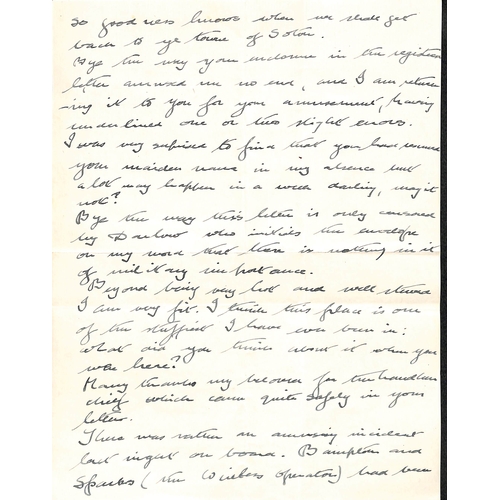 So goodness knows when we shall get
back to ye towne of Soton.
Bye the way your enclosure in the registered
letter amused me no end, and I am return
ing it to you for your amusement, having
underlined one or two slight errors.
I was very suprised to find that you have resumed
your maiden name in my absence but
a lot may happen in a week darling, may it
not?
Bye the way this letter is only censored
by Darlow who initials the envelope
on my word that there is nothing in it
of military importance.
Beyond being very hot and well stewed
I am very fit. I think this place is one
of the stuffiest I have ever been in;
what did you think about it when you
were here?
Many thanks my beloved for the handker
chief which came quite safely in your
letter.
There was rather an amusing incident
last night on board. Bampton and
Sparks (the Wireless operator) had been